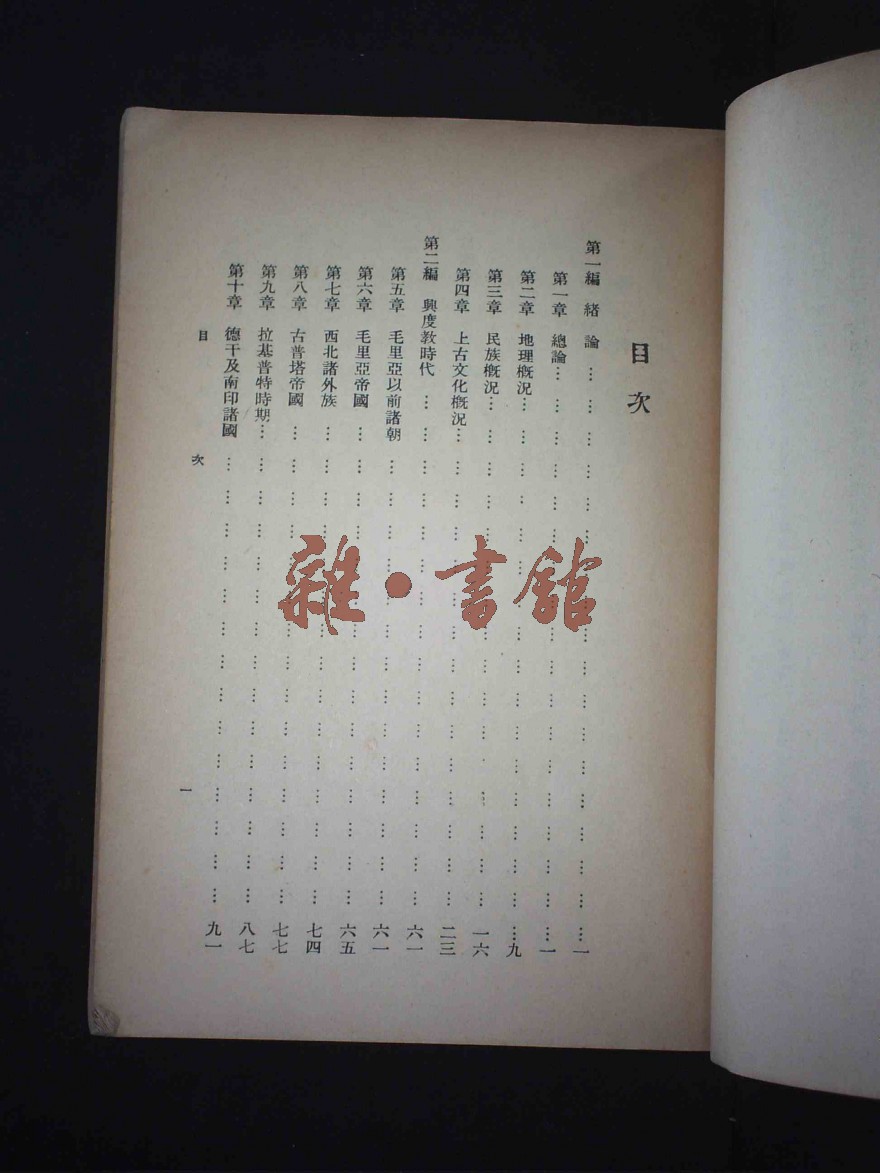 目次
第一編 緒論 … … … … … … … … … … … … … … … … …一
第一章 總論… … … … … … … … … … … … … … … … …一
第二章 地理概況… … … … … … … … … … … … … … … …九
第三章 民族概況… … … … … … … … … … … … … … … 一六
第四章 上古文化概況… … … … … … … … … … … … … … … 二三
第二編 興度教時代 … … … … … … … … … … … … … … … 六一
第五章 毛里亞以前諸朝 … … … … … … … … … … … … … … 六一
第六章 毛里亞帝國 … … … … … … … … … … … … … … … 六五
第七章 西北諸外族 … … … … … … … … … … … … … … … 七四
第八章 古普塔帝國 … … … … … … … … … … … … … … … 七七
第九章 拉基普特時期… … … … … … … … … … … … … … … 八七
第十章 德干及南印諸國 … … … … … … … … … … … … … … 九一
目 次 一
雜·書館